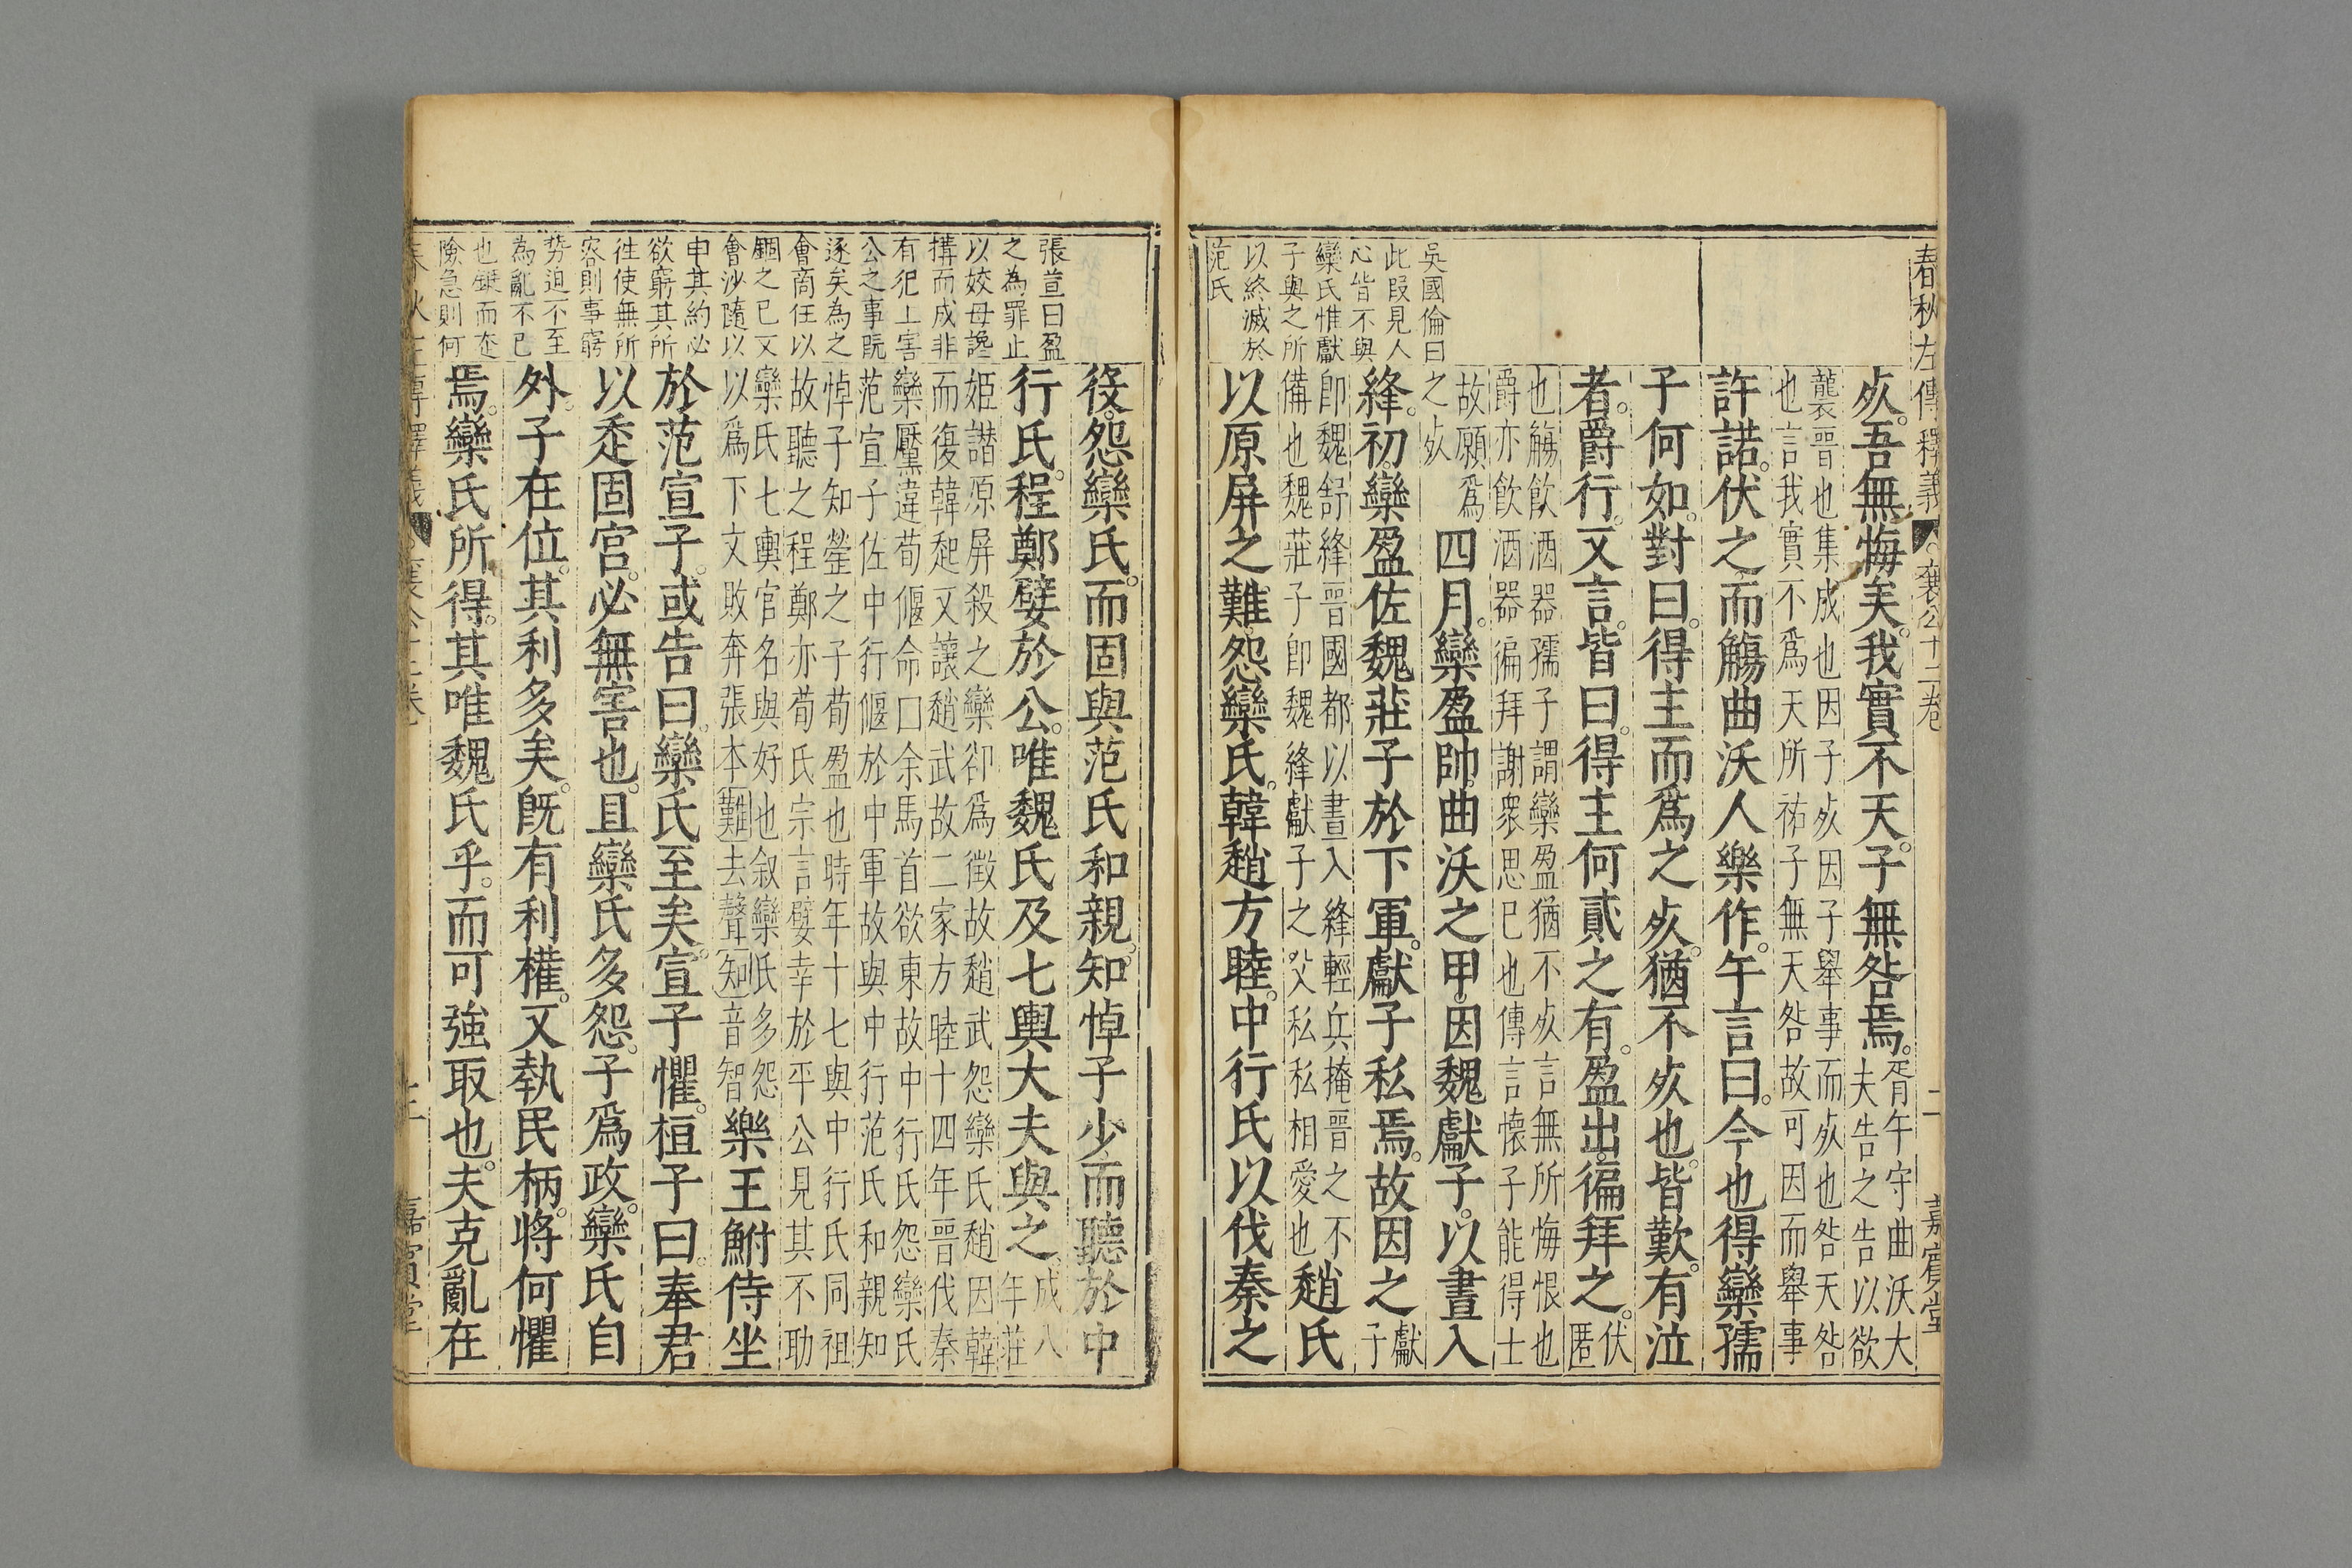 春秋左傳釋義 襄公十二卷 二 嘉賓堂
吳國倫曰
此段見人
心皆不與
欒氏惟獻
子與之所
以終滅於
范氏
死。吾無悔矣。我實不天。子無咎焉。
胥午守曲沃大
夫告之告以欲
襲晉也集成也因子死因子舉事而死也咎天咎
也言我實不爲天所祐子無天咎故可因而舉事
許諾。伏之而觴曲沃人樂作。午言曰。今也得欒孺
子何如。對曰。得主而爲之死。猶不死也。皆歎。有泣
者。爵行。又言。皆曰。得主何貳之有。盈出。徧拜之。
伏
匿
也觴飲酒器孺子謂欒盈猶不死言無所悔恨也
爵亦飲酒器徧拜謝衆思已也傳言懷子能得士
故願爲
之死
四月。欒盈帥曲沃之甲。因魏獻子。以晝入
絳。初。欒盈佐魏莊子於下軍。獻子私焉。故因之
獻
子
卽魏舒絳晉國都以晝入絳輕兵掩晉之不
備也魏莊子卽魏絳獻子之父私私相愛也
趙氏
以原屏之難怨欒氏。韓趙方睦。中行氏以伐秦之
張萱曰盈
之為罪止
以姣母讒
搆而成非
有犯上害
公之事旣
逐矣為之
會商任以
錮之已又
會沙隨以
申其約必
欲窮其所
徃使無所
容則事窮
势迫不至
為亂不已
也鋌而走
險急則何
役。怨欒氏。而固與范氏和親。知悼子少。而聽於中
行氏。程鄭嬖於公。唯魏氏及七輿大夫與之。
成八
年莊
姬譖原屏殺之欒卻爲徵故趙武怨欒氏趙因韓
而復韓起又讓趙武故二家方睦十四年晉伐秦
欒黶違荀偃命曰余馬首欲東故中行氏怨欒氏
范宣子佐中行偃於中軍故與中行范氏和親知
悼子知罃之子荀盈也時年十七與中行氏同祖
故聽之程鄭亦荀氏宗言嬖幸於平公見其不助
欒氏七輿官名與好也叙欒氏多怨
以爲下文敗奔張本難去聲知音智
樂王鮒侍坐
於范宣子。或告曰。欒氏至矣。宣子懼。桓子曰。奉君
以走固宮。必無害也。且欒氏多怨。子爲政。欒氏自
外。子在位。其利多矣。旣有利權。又執民柄。將何懼
焉。欒氏所得。其唯魏氏乎。而可強取也。夫克亂在